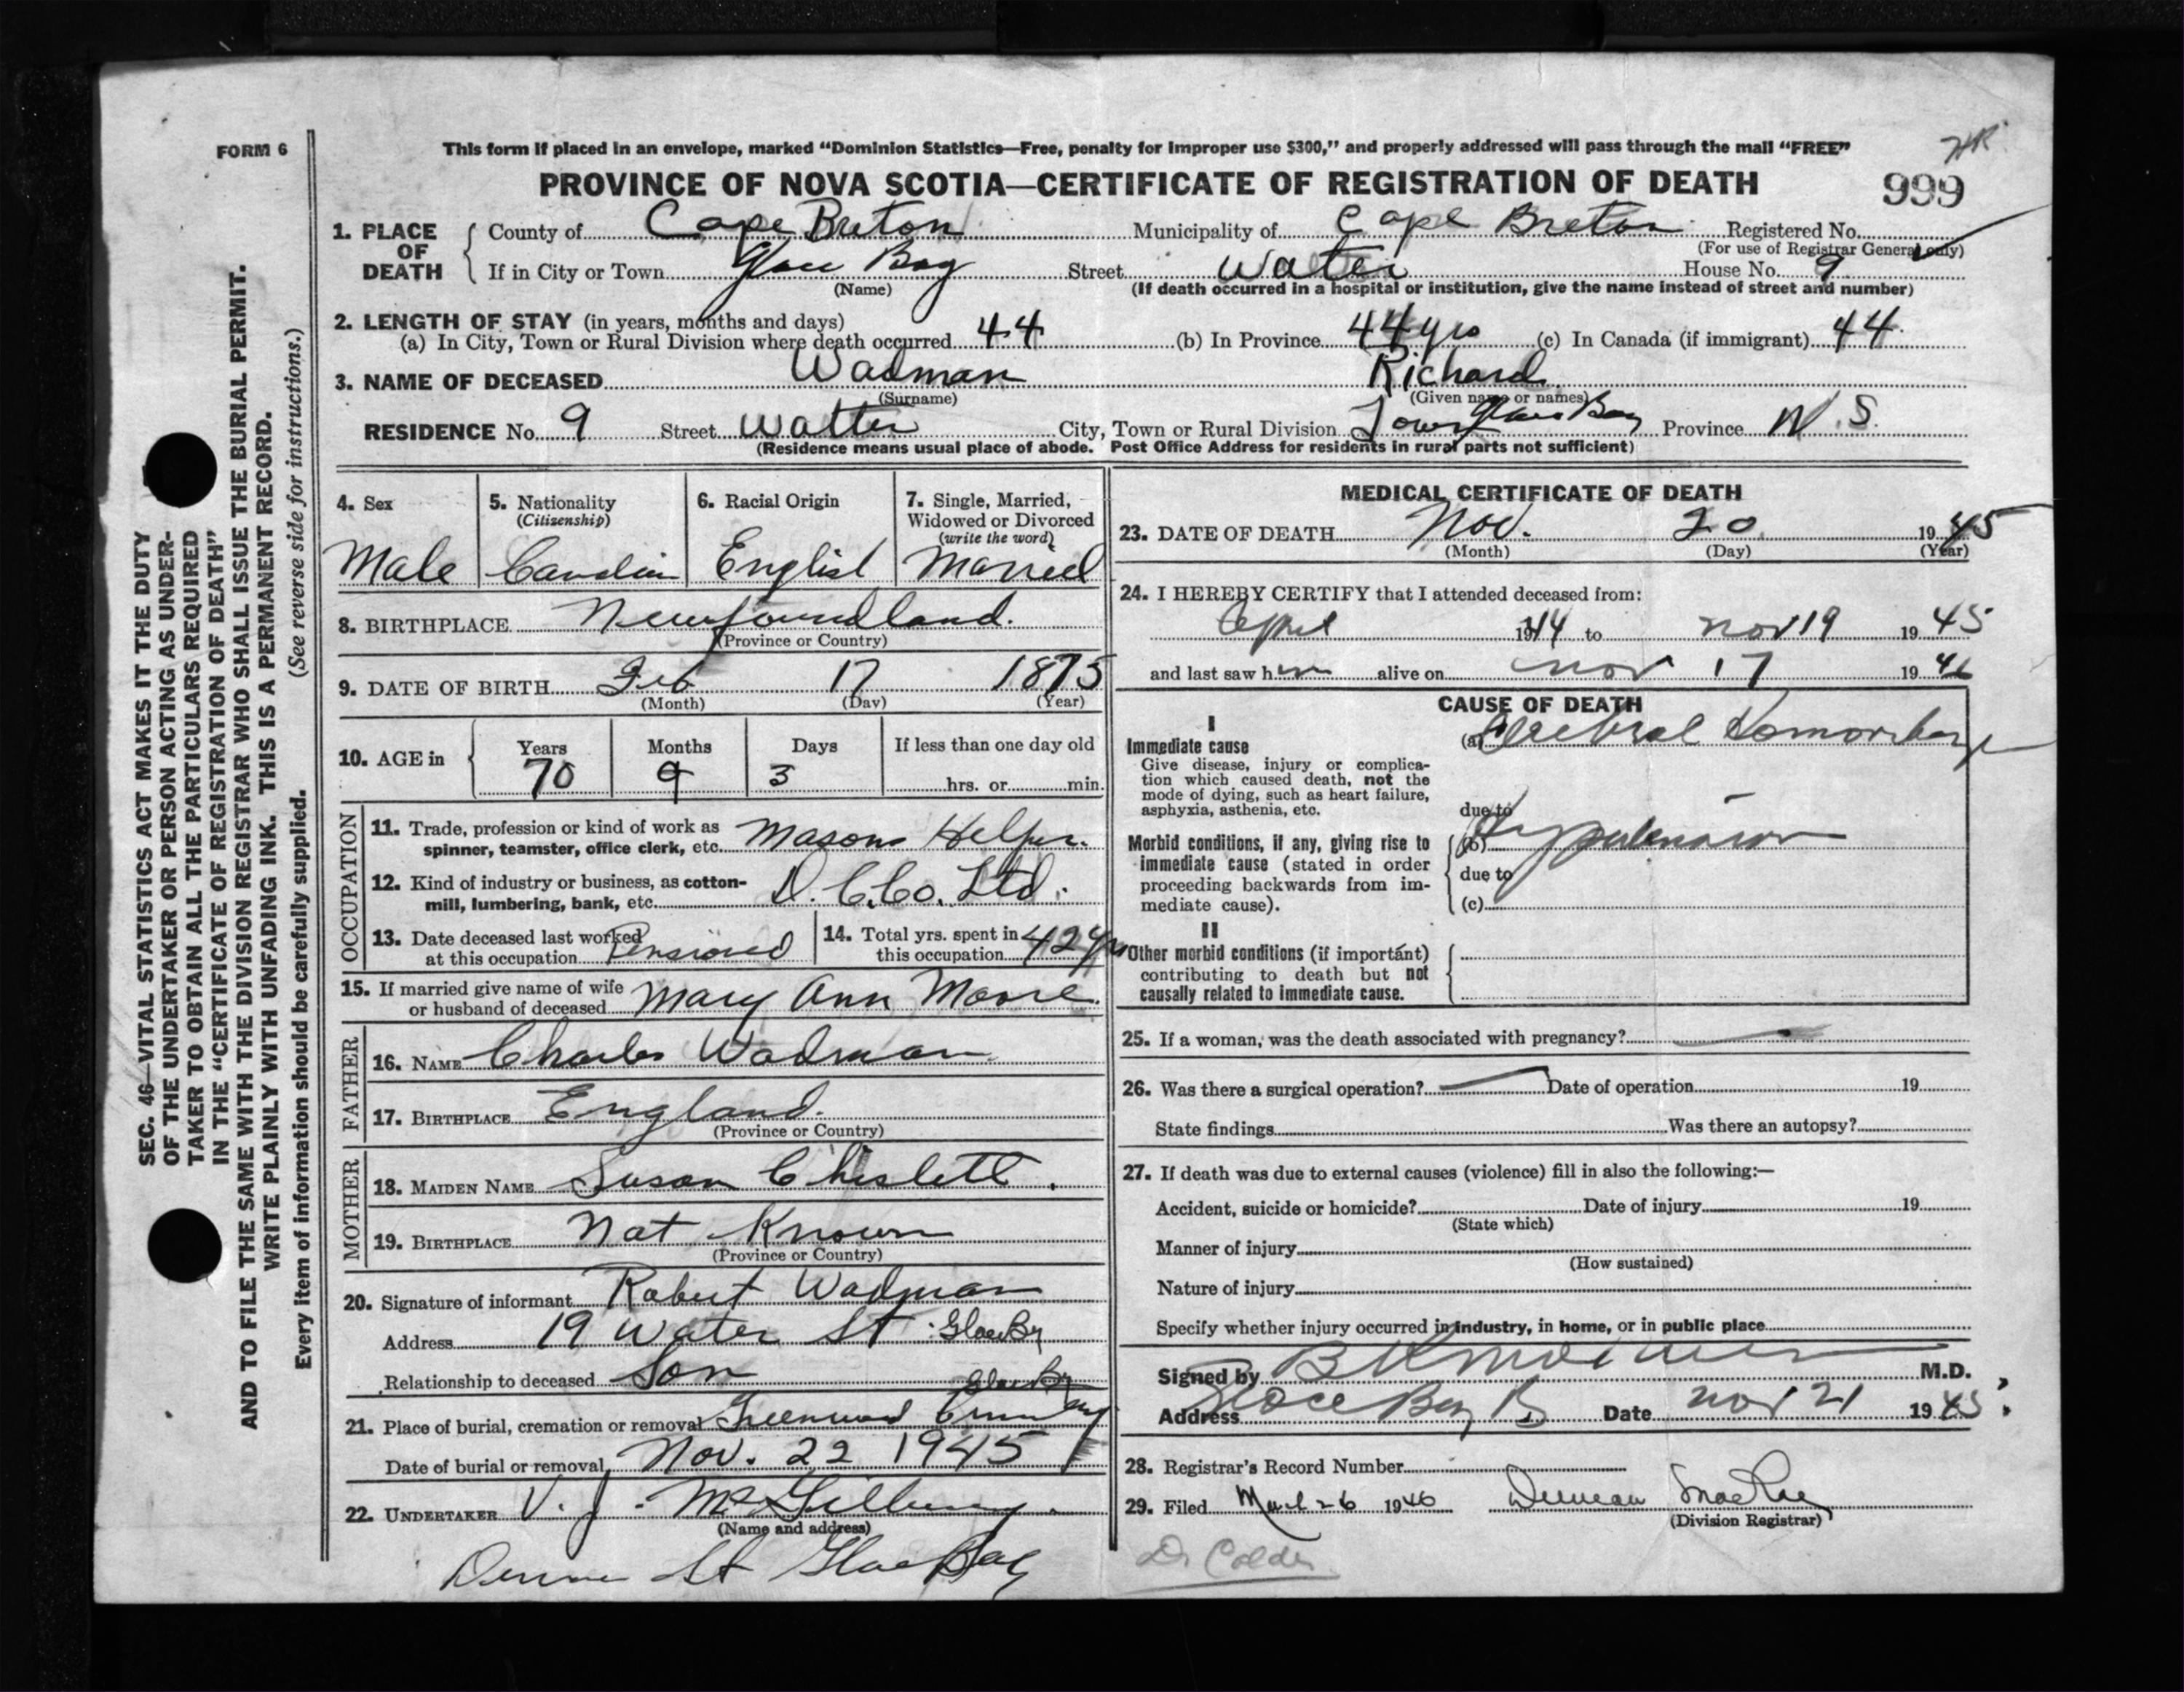 FORM 6
This form if placed in an envelope, marked “Dominion Statistics—Free, penalty for improper use $300,” and properly addressed will pass through the mail “FREE”
PROVINCE OF NOVA SCOTIA—CERTIFICATE OF REGISTRATION OF DEATH
999
1. PLACE OF DEATH
County of Cape Breton Municipality of Cape Breton Registered No.
(For use of Registrar General only)
If in City or Town Glace Bay Street Water House No. 9
(Name) (If death occurred in a hospital or institution, give the name instead of street and number)
2. LENGTH OF STAY (in years, months and days)
(a) In City, Town or Rural Division where death occurred 44 (b) In Province 44 yrs (c) In Canada (if immigrant) 44
3. NAME OF DECEASED Wadman Richard
(Surname) (Given name or names)
RESIDENCE No. 9 Street Watter City, Town or Rural Division Town Glace Bay Province N.S.
(Residence means usual place of abode. Post Office Address for residents in rural parts not sufficient)
4. Sex
Male
5. Nationality
(Citizenship)
Candian
6. Racial Origin
English
7. Single, Married,
Widowed or Divorced
(write the word)
Married
8. BIRTHPLACE Newfoundland.
(Province or Country)
9. DATE OF BIRTH Feb 17 1875
(Month) (Day) (Year)
10. AGE in
Years Months Days If less than one day old
70 9 3 hrs. or min.
OCCUPATION
11. Trade, profession or kind of work as
spinner, teamster, office clerk, etc. Masons Helper.
12. Kind of industry or business, as cotton-
mill, lumbering, bank, etc. D. C. Co. Ltd.
13. Date deceased last worked
at this occupation Pensioned
14. Total yrs. spent in
this occupation 42 yrs
15. If married give name of wife
or husband of deceased Mary Ann Moore.
FATHER
16. NAME Charles Wadman
17. BIRTHPLACE England.
(Province or Country)
MOTHER
18. MAIDEN NAME Susan Chislett.
19. BIRTHPLACE Not Known
(Province or Country)
20. Signature of informant Robert Wadman
Address 19 Water St. Glace Bay
Relationship to deceased Son
Glace Bay
21. Place of burial, cremation or removal Greenwood Cemetery
Date of burial or removal Nov. 22 1945
22. UNDERTAKER V. J. McGillivray.
(Name and address)
St Glace Bay
MEDICAL CERTIFICATE OF DEATH
23. DATE OF DEATH Nov. 20 1945
(Month) (Day) (Year)
24. I HEREBY CERTIFY that I attended deceased from:
April 1944 to Nov 19 1945
and last saw him alive on Nov 17 19
CAUSE OF DEATH
I
Immediate cause
Give disease, injury or complica-
tion which caused death, not the
mode of dying, such as heart failure,
asphyxia, asthenia, etc.
(a) Cerebral Homorrhage
due to
Morbid conditions, if any, giving rise to
immediate cause (stated in order
proceeding backwards from im-
mediate cause).
(b) Hypertension
due to
(c)
II
Other morbid conditions (if important)
contributing to death but not
causally related to immediate cause.
25. If a woman, was the death associated with pregnancy?
26. Was there a surgical operation? Date of operation 19
State findings Was there an autopsy?
27. If death was due to external causes (violence) fill in also the following:—
Accident, suicide or homicide? Date of injury 19
(State which)
Manner of injury
(How sustained)
Nature of injury
Specify whether injury occurred in industry, in home, or in public place
Signed by M.D.
Address Glace Bay Date Nov 21 1945
28. Registrar's Record Number
29. Filed March 26 1946 Duncan MacRae
(Division Registrar)
Dr Calder
SEC. 46—VITAL STATISTICS ACT MAKES IT THE DUTY
OF THE UNDERTAKER OR PERSON ACTING AS UNDER-
TAKER TO OBTAIN ALL THE PARTICULARS REQUIRED
IN THE “CERTIFICATE OF REGISTRATION OF DEATH”
AND TO FILE THE SAME WITH THE DIVISION REGISTRAR WHO SHALL ISSUE THE BURIAL PERMIT.
WRITE PLAINLY WITH UNFADING INK. THIS IS A PERMANENT RECORD.
Every item of information should be carefully supplied. (See reverse side for instructions.)